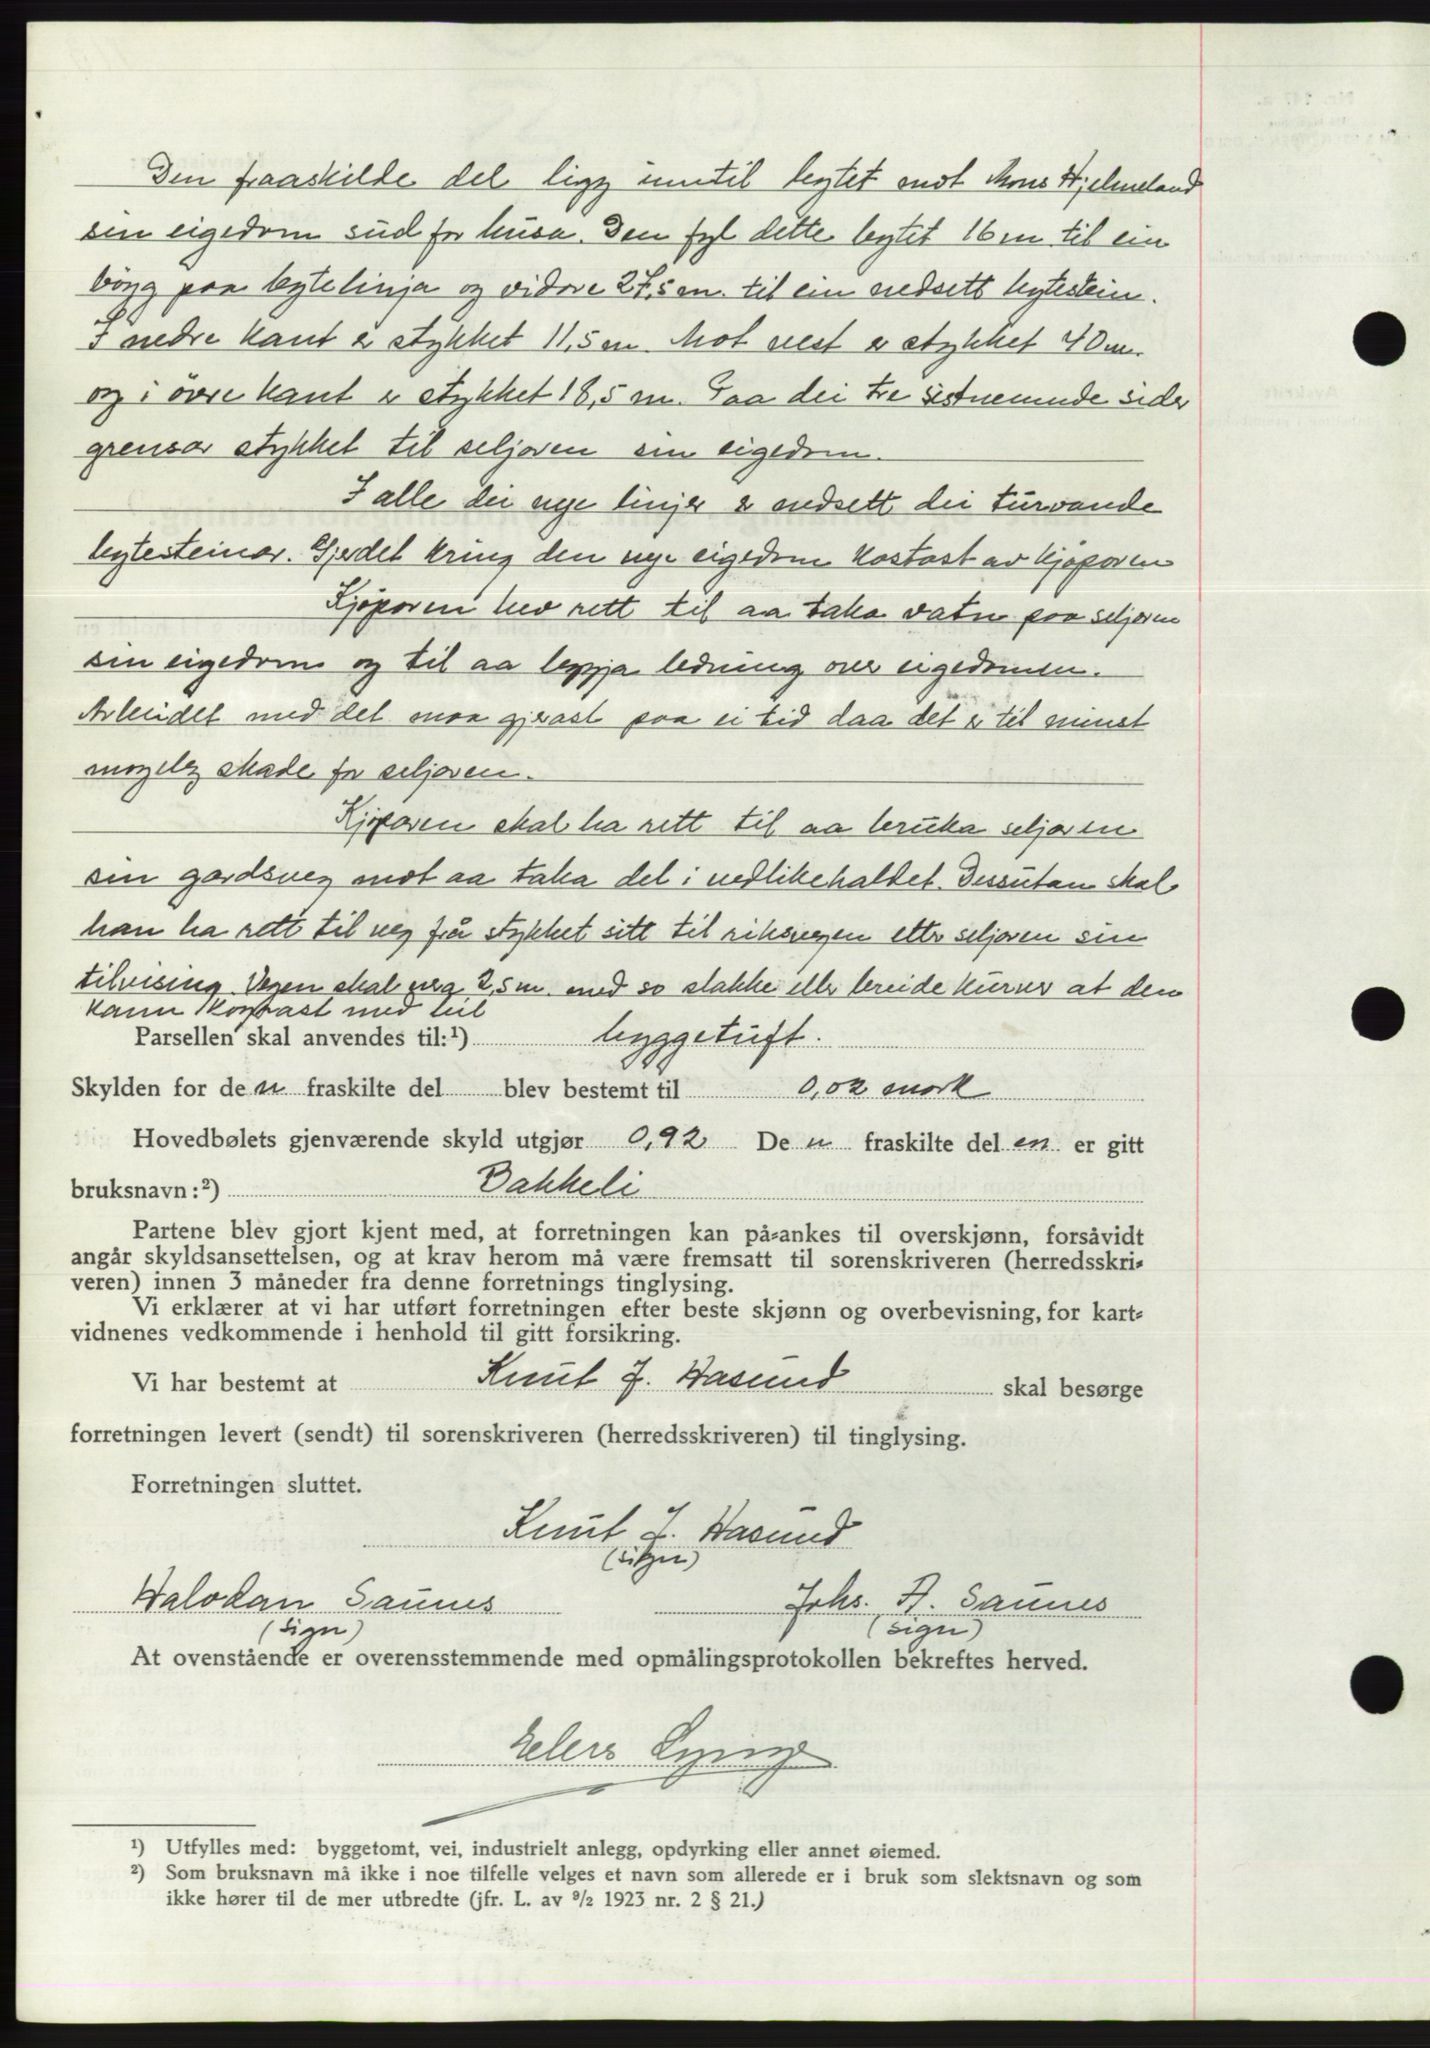 Den fraaskilde del ligg inntil bytet mot Mons Hjelmeland
sin eigedom sud for husa. Den fyl dette bytet 16 m til ein
böyg paa bytelinja og vidare 27,5 m. til ein nedsett bytestein.
I nedre kant er stykket 11,5 m. Mot vest er stykket 40 m.
og i övre kant er stykket 18,5 m. Paa dei tre sistnemnde sider
grensar stykket til seljaren sin eigedom.
I alle dei nye linjer er nedsett dei turvande
bytesteinar. Gjerdet kring den nye eigedom kostast av kjöparen
Kjöparen hev rett til aa taka vatn paa seljaren
sin eigedom og til aa leggja ledning over eigedomen.
Arbeidet med det maa gjerast paa ei tid daa det er til minst
mogeleg skade for seljaren.
Kjöparen skal ha rett til aa bruka seljaren
sin gardsveg mot aa taka del i vedlikehaldet. Dessutan skal
han ha rett til veg frå stykket sitt til riksvegen etter seljaren sin
tilvising. Vegen skal vera 2,5 m. med so slakke eller breide kurver at den
kann köyrast med bil
Parsellen skal anvendes til:¹) byggetuft.
Skylden for den fraskilte del blev bestemt til 0,02 mark
Hovedbølets gjenværende skyld utgjør 0,92 Den fraskilte del en er gitt
bruksnavn:²) Bakkeli
Partene blev gjort kjent med, at forretningen kan på-ankes til overskjønn, forsåvidt
angår skyldsansettelsen, og at krav herom må være fremsatt til sorenskriveren (herredsskri-
veren) innen 3 måneder fra denne forretnings tinglysing.
Vi erklærer at vi har utført forretningen efter beste skjønn og overbevisning, for kart-
vidnenes vedkommende i henhold til gitt forsikring.
Vi har bestemt at Knut J. Hasund skal besørge
forretningen levert (sendt) til sorenskriveren (herredsskriveren) til tinglysing.
Forretningen sluttet.
Knut J. Hasund
(sign)
Halvdan Saunes Johs. A. Saunes
(sign) (sign)
At ovenstående er overensstemmende med opmålingsprotokollen bekreftes herved.
Elers Lynge
¹) Utfylles med: byggetomt, vei, industrielt anlegg, opdyrking eller annet øiemed.
²) Som bruksnavn må ikke i noe tilfelle velges et navn som allerede er i bruk som slektsnavn og som
ikke hører til de mer utbredte (jfr. L. av ⁹/₂ 1923 nr. 2 § 21.)